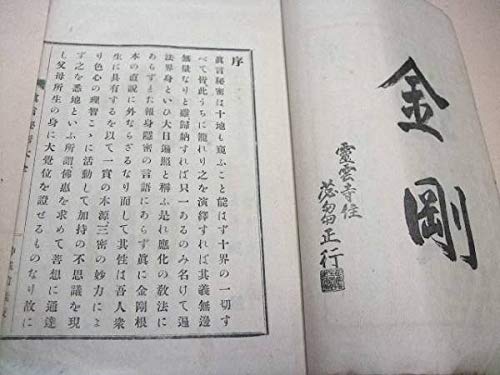 金剛
靈雲寺住
正行
序
眞言秘密は十地も窺ふこと能はず十界の一切す
べて皆此うちに籠れり之を演繹すれば其義無邊
無量なりと雖歸納すれば只一あるのみ名けて遍
法界身といひ大日遍照と稱ふ是れ應化の敎法に
あらずまた報身隱密の言語にあらず眞に金剛根
本の直說に外ならざるなり而して其性は吾人衆
生に具有するを以て一實の本源三密の妙力によ
り色心の理智こゝに活動して加持の不思議を現
ずる之を悉地といふ所謂佛惠を求めて菩想に通達
し父母所生の身に大覺位を證せるものなり故に